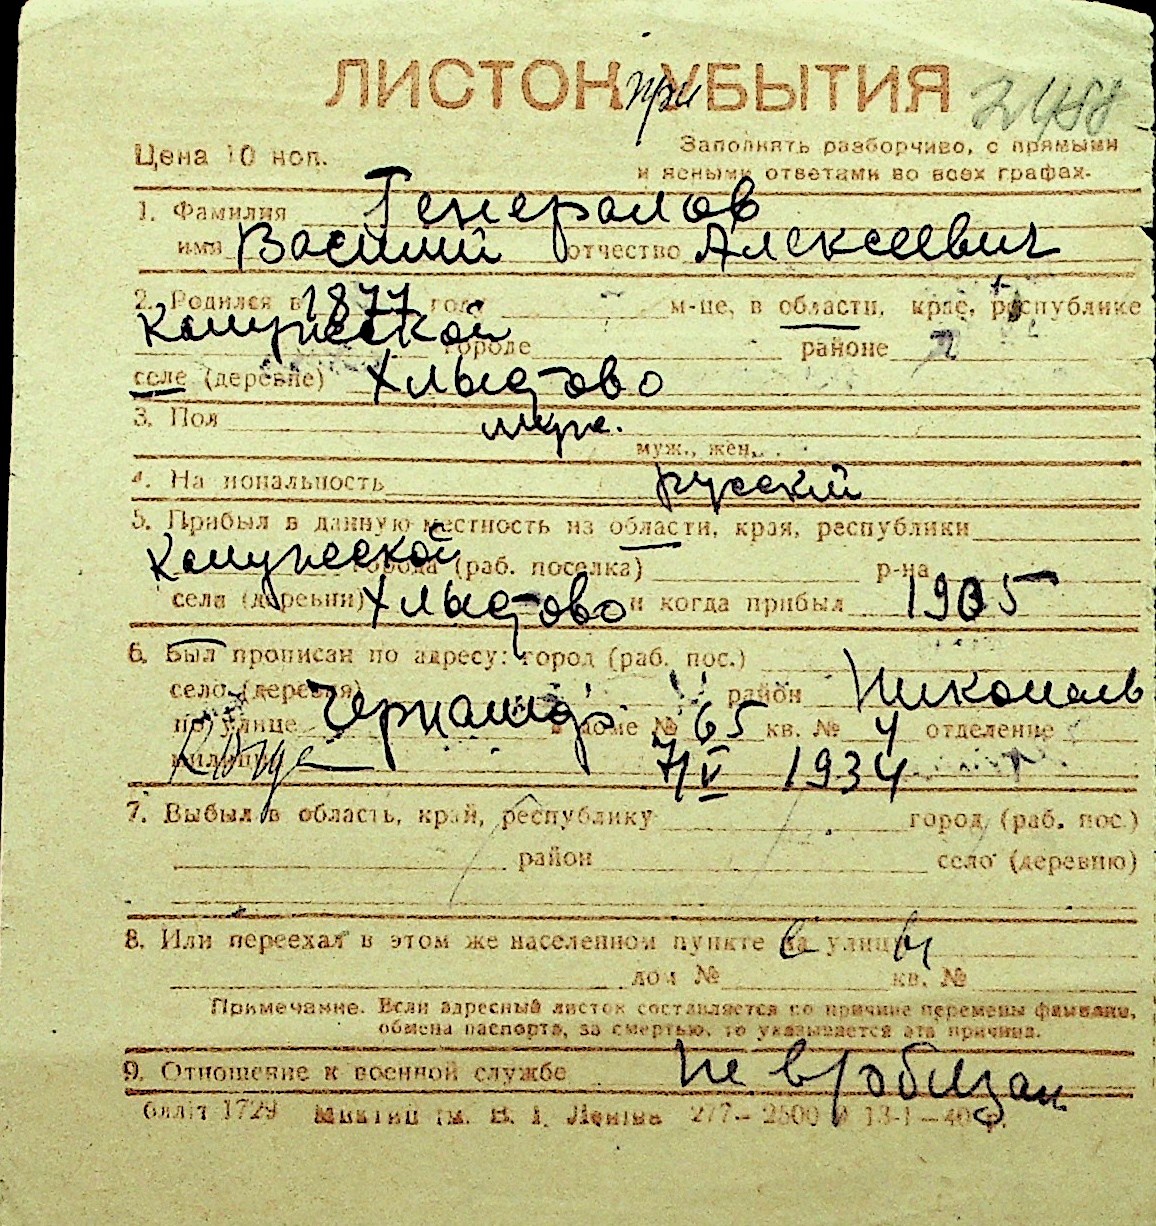 ЛИСТОК при УБЫТИЯ 2488
Цена 10 коп.
Заполнять разборчиво, с прямыми
и ясными ответами во всех графах.
1. Фамилия Генералов
имя Василий отчество Алексеевич
2. Родился в 1877 году м-це, в области, крае, республике
Калужской городе районе
селе (деревне) Хлыстово
3. Пол муж.
муж., жен.
4. Национальность русский
5. Прибыл в данную местность из области, края, республики
Калужской города (раб. поселка) р-на
села (деревни) Хлыстово и когда прибыл 1905
6. Был прописан по адресу: город (раб. пос.)
село (деревня) район Никополь
по улице в доме № 65 кв. № 4 отделение
милиции 7/V 1934
7. Выбыл в область, край, республику город (раб. пос.)
район село (деревню)
8. Или переехал в этом же населенном пункте на улицу
дом № кв. №
Примечание. Если адресный листок составляется по причине перемены фамилии,
обмена паспорта, за смертью, то указывается эта причина.
9. Отношение к военной службе
1729 277-2500 13-1-40 р.